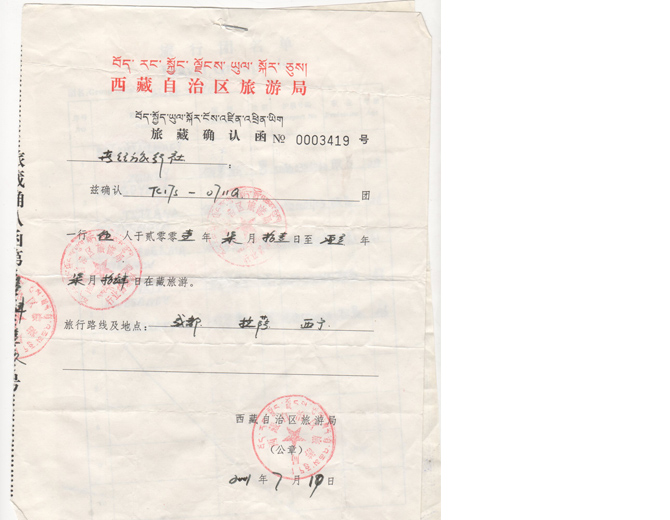 བོད་ རང་ སྐྱོང་ ལྗོངས་ ཡུལ་ སྐོར་ ཅུས།
西藏自治区旅游局
旅藏确认函 № 0003419 号
旅行社：
兹确认 TC17S - 0711Q 团
一行 伍 人于贰零零壹年 柒 月 拾壹 日至 年
柒 月 拾肆 日在藏旅游。
旅行路线及地点： 成都 拉萨 西宁
西藏自治区旅游局
（公章）
2001 年 7 月 10 日
旅藏确认函第 号